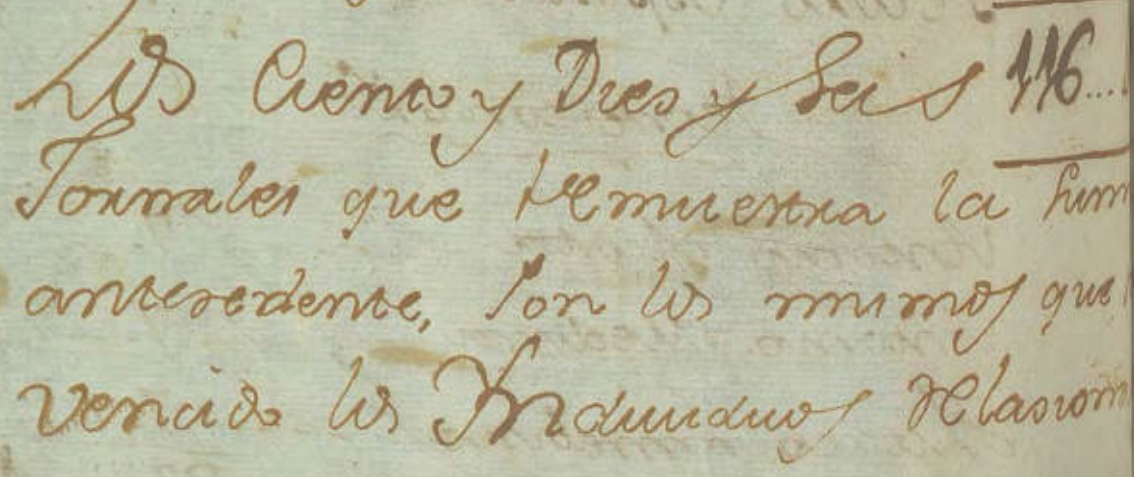 Los Ciento y Dies y Seis 116....
Jornales que demuestra la sum
antesedente, son los mismos que
vencido los Yndividuos